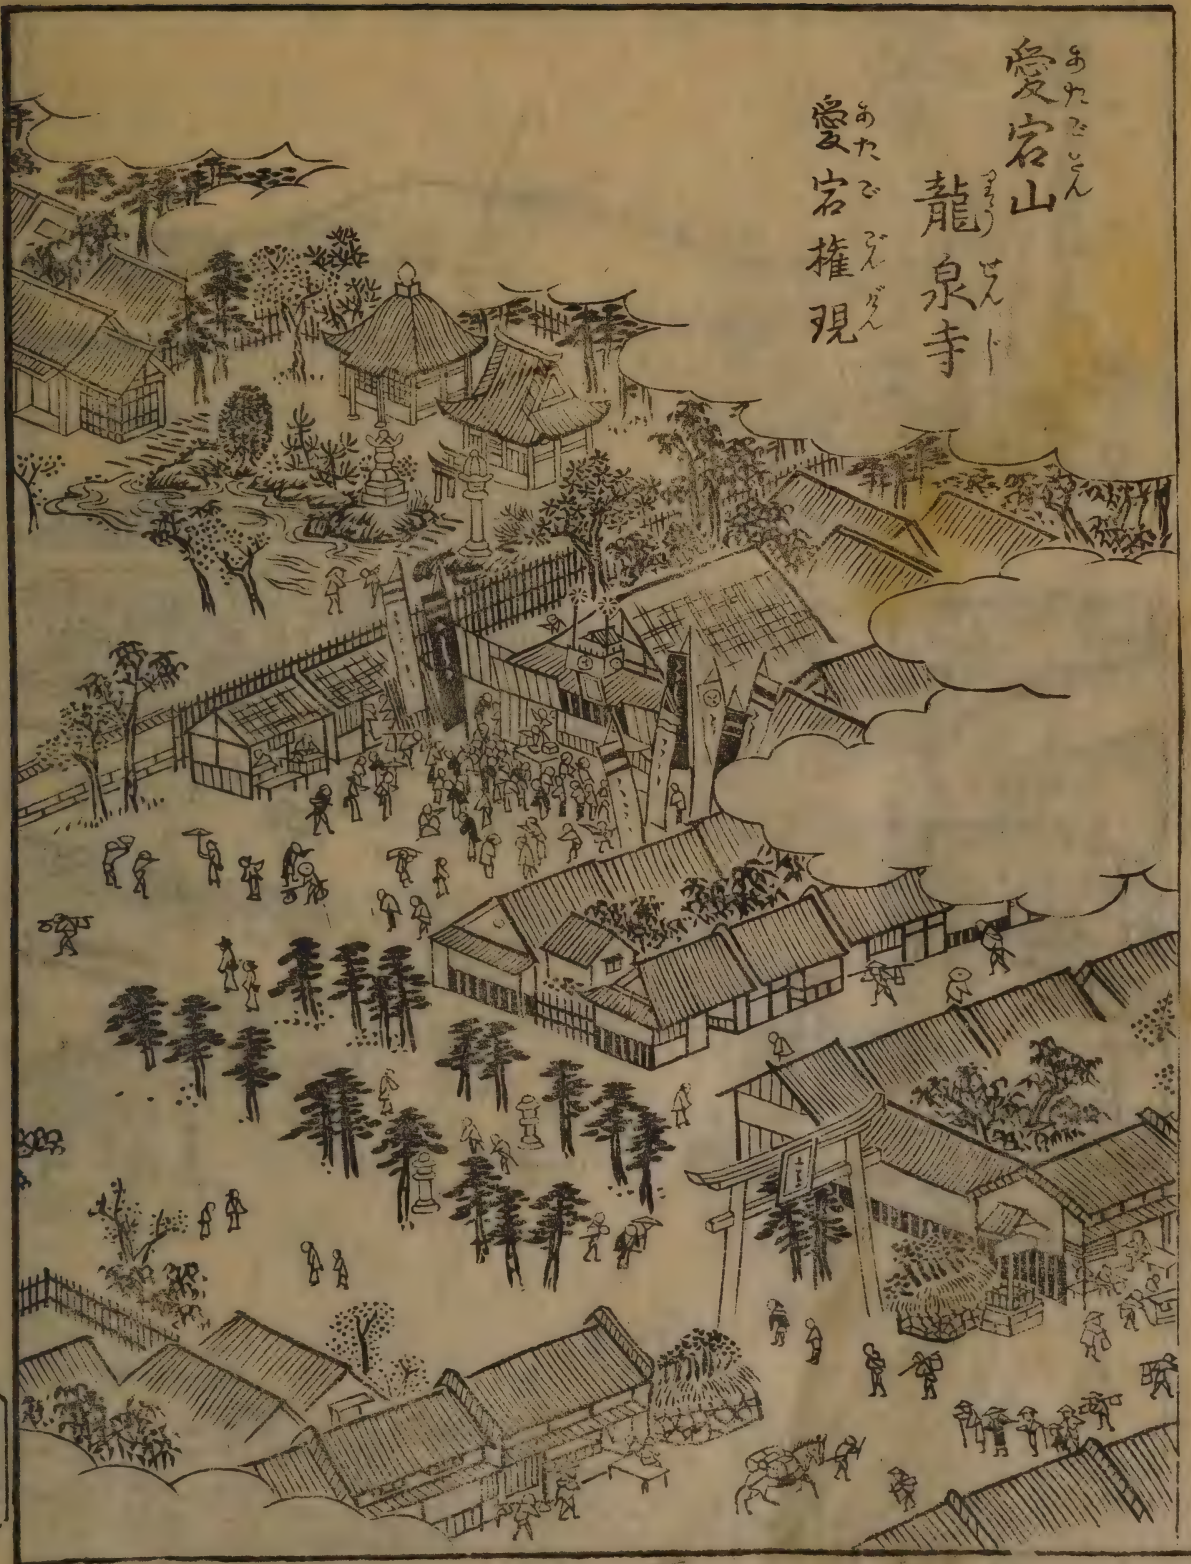 愛宕山
あたごさん
龍泉寺
りうせんじ
愛宕権現
あたごごんげん